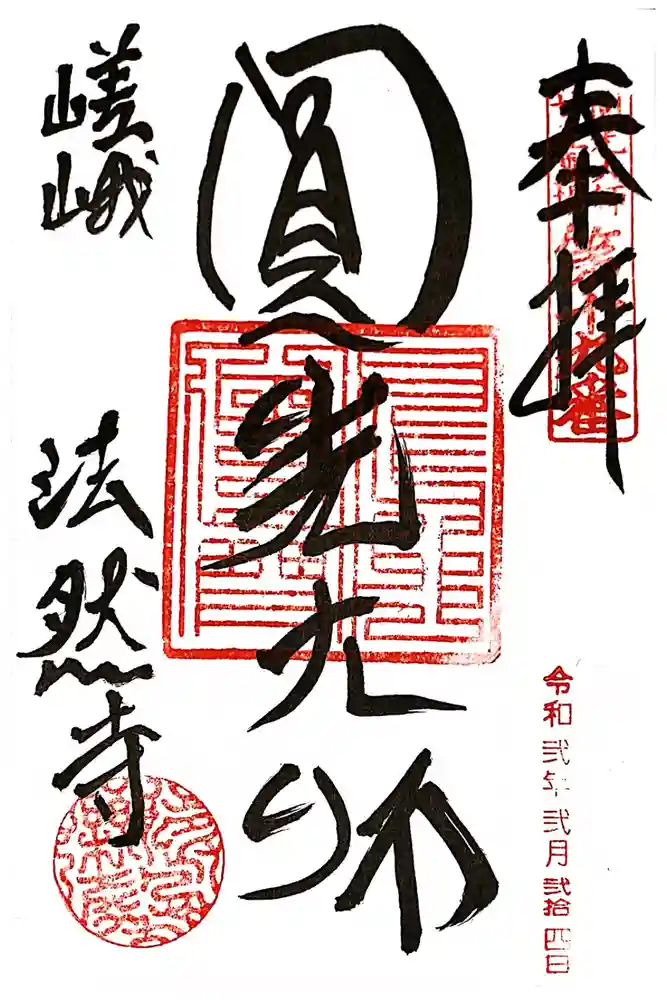 奉拝
圓光大師
嵯峨
法然寺
令和弐年弐月弐拾四日